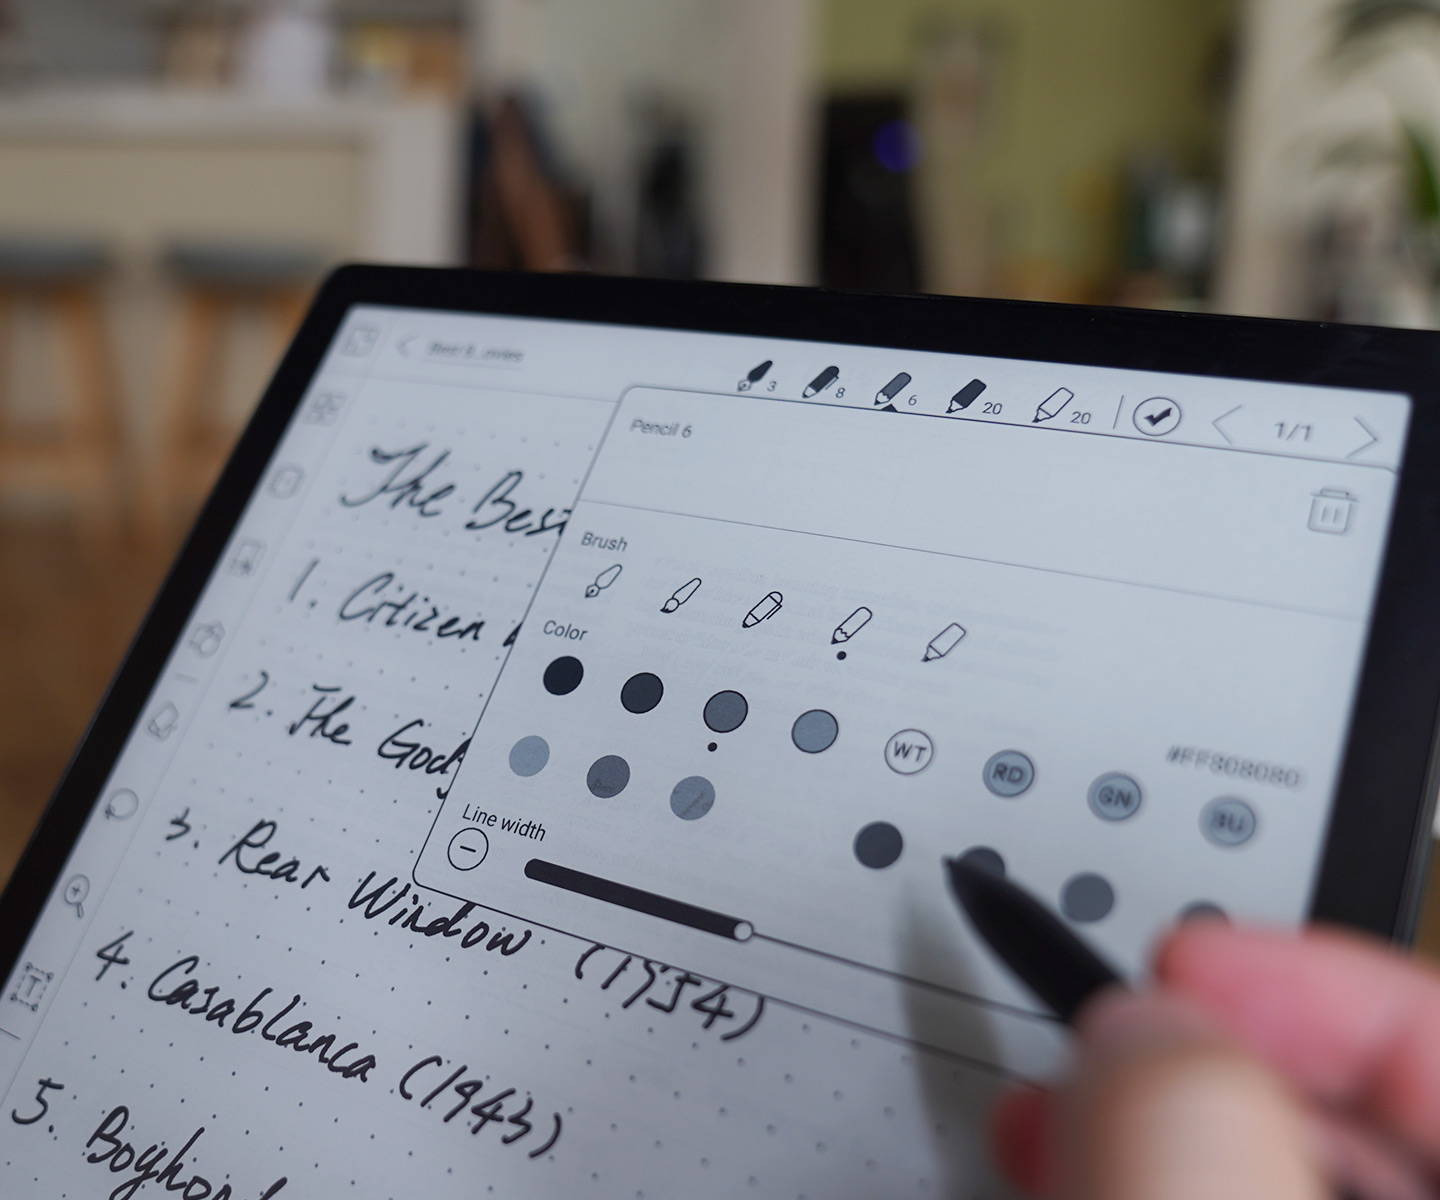 Best 8...ovies
3 8 6 20 20 1/1
Pencil 6
The Best
Brush
1. Citizen
Color
2. The God
WT RD GN BU
#FF808080
Line width
3. Rear Window (1954)
4. Casablanca (1943)
5. Boyhood